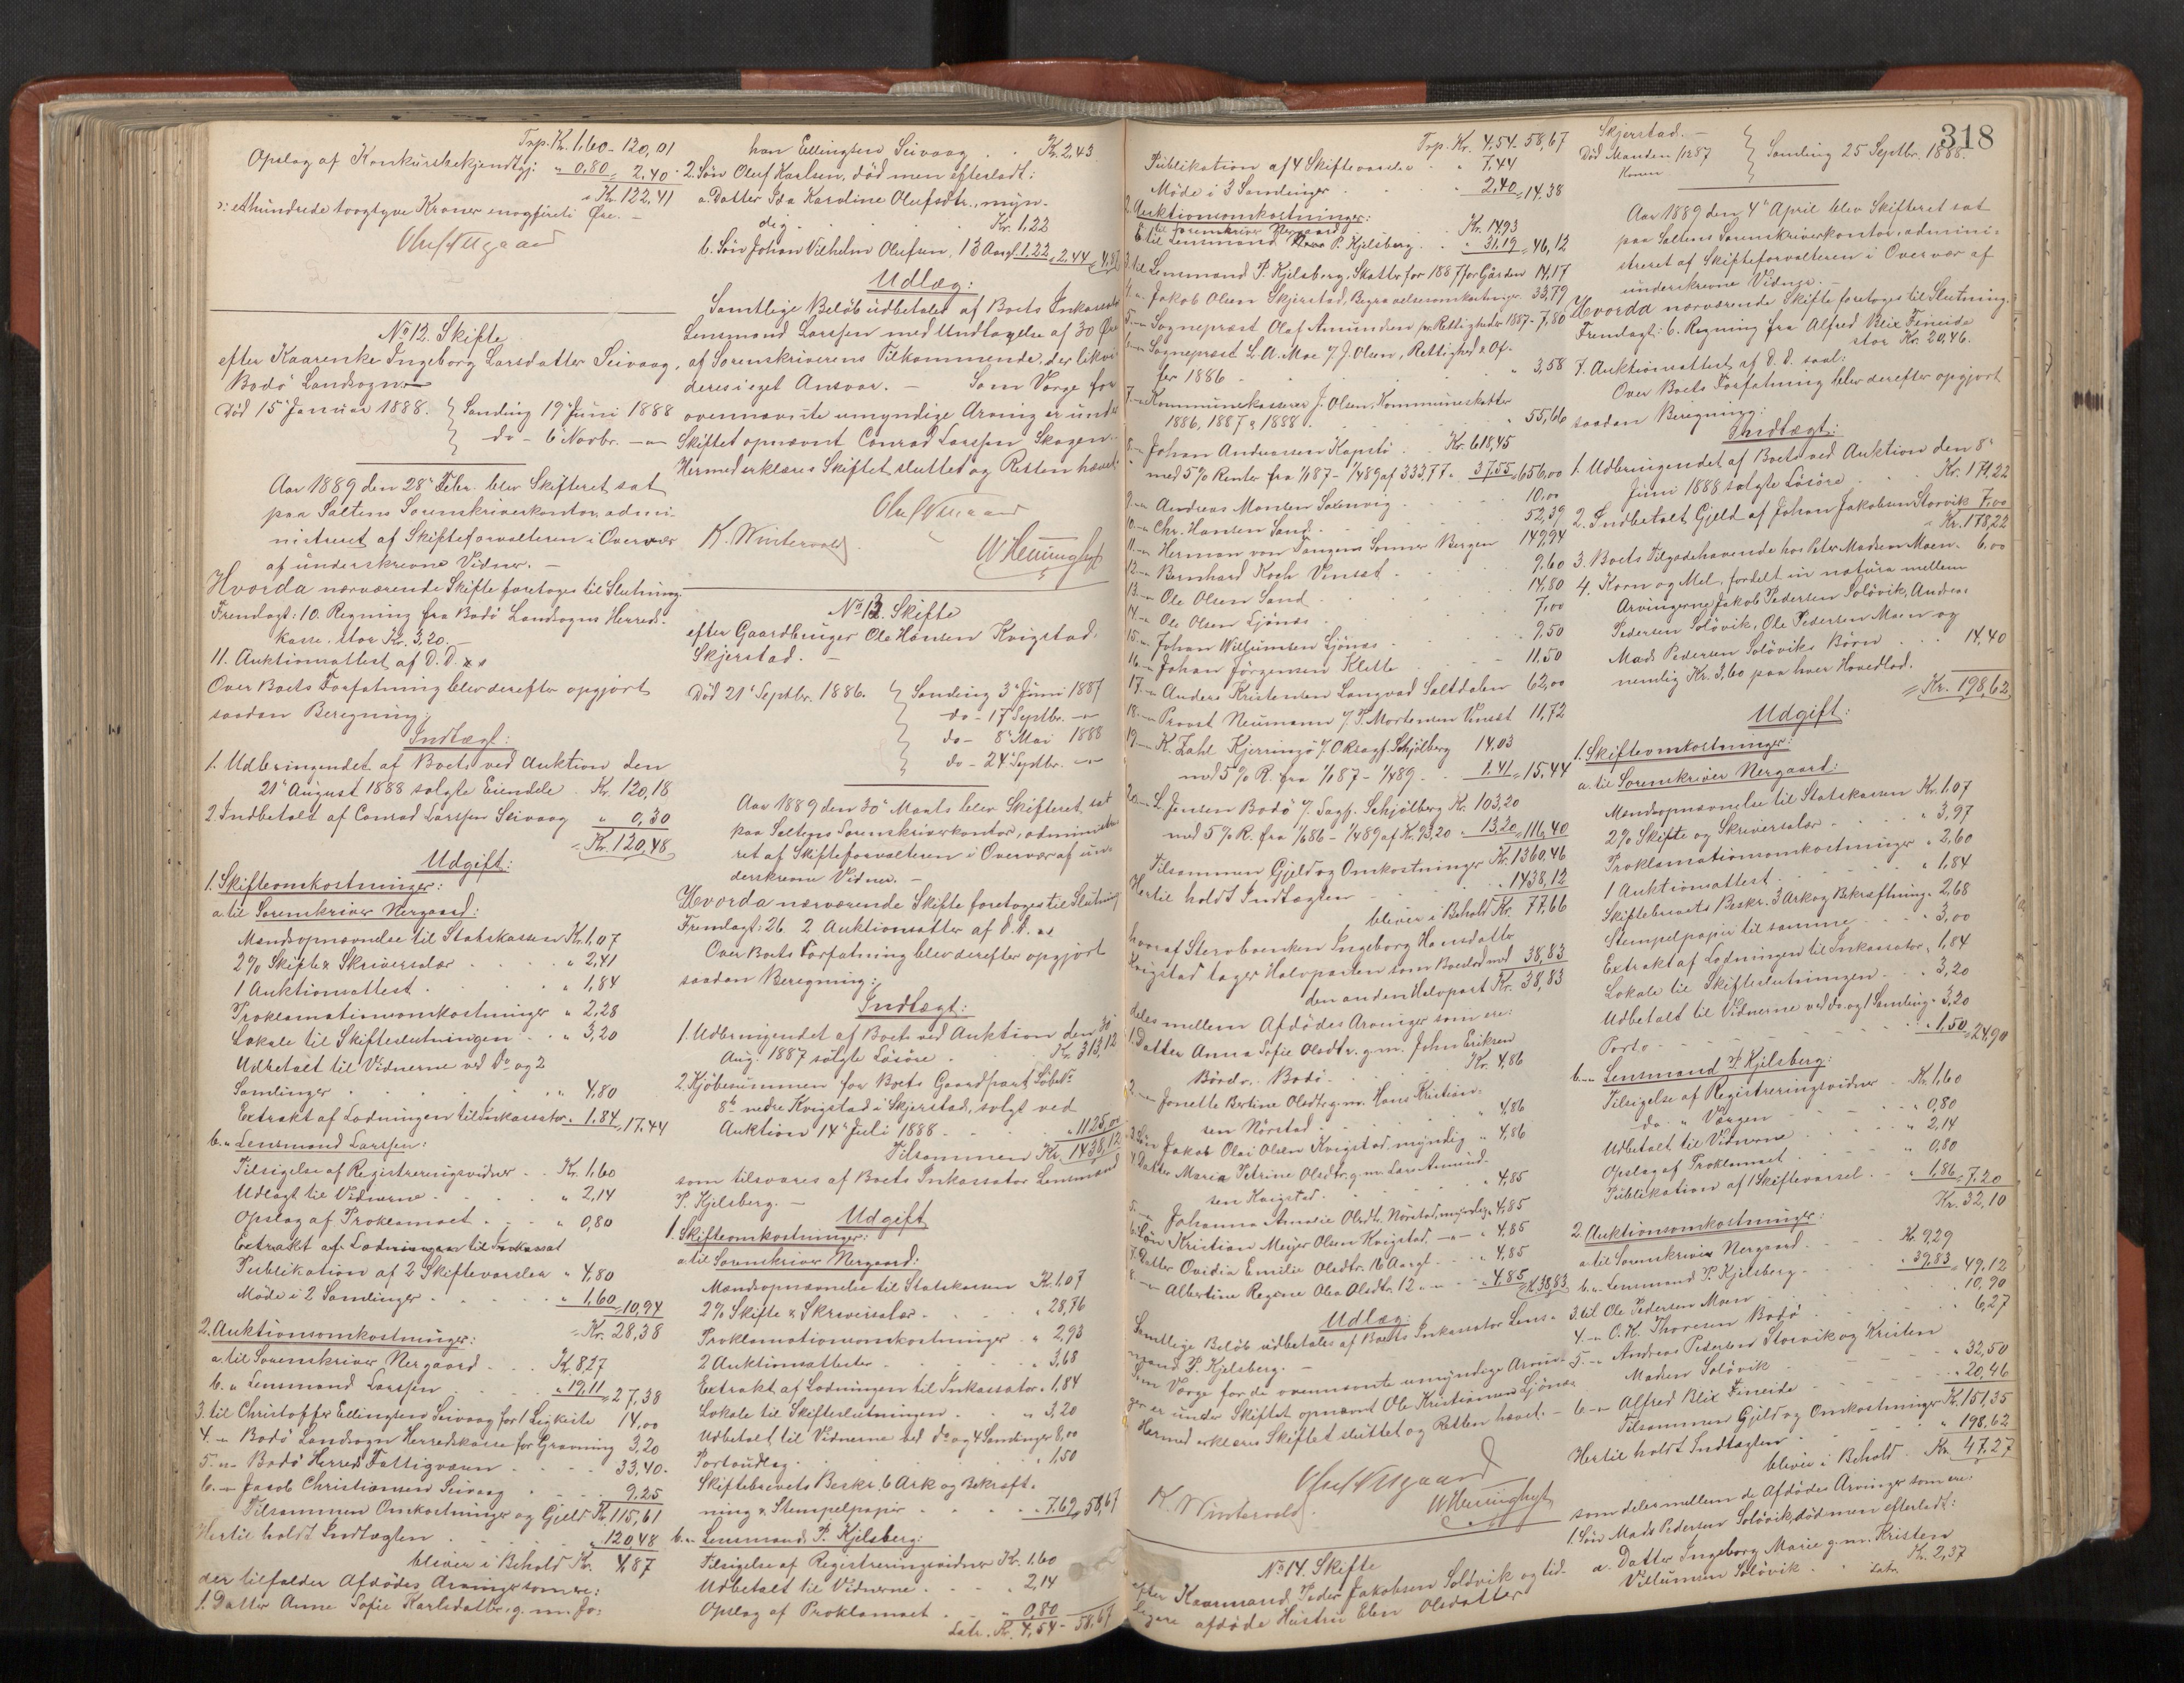 Trsp. Kr. 1,60 - 120,01
Opslag af Konkursbekjendtgj: " 0,80 = 2,40
= Kr. 122,41
ɔ: et hundrede toogtyve Kroner enogfirti Øre. -
Oluf Nergaard
No 12. Skifte
efter Kaarenke Ingeborg Larsdatter Seivaag,
Bodö Landsogn
Död 15 Januar 1888. Samling 19 Juni 1888
do - 6 Novbr. - " -
Aar 1889 den 28 Febr. blev Skifteret sat
paa Saltens Sorenskriverkontor, admi-
nistreret af Skifteforvalteren i Overvær
af underskrevne Vidner. -
Hvorda nærværende Skifte foretoges til Slutning.
Fremlagt: 10. Regning fra Bodö Landsogns Herreds-
kasse, stor Kr. 3,20. -
11. Auktionsattest af D. D.
Over Boets Forfatning blev derefter opgjort
saadan Beregning:
Indtægt:
1. Udbringendet af Boets ved Auktion den
21 August 1888 solgte Eiendele . Kr. 120,18
2. Indbetalt af Conrad Larssen Seivaag " 0,30
= Kr. 120,48
Udgift:
1. Skifteomkostninger:
a. til Sorenskriver Nergaard:
Mandsopnævnelse til Statskassen Kr. 1,07
2% Skifte & Skriversalær . . " 2,41
1 Auktionsattest . . . " 1,84
Proklamationsomkostninger " 2,28
Lokale til Skifteslutningen . . " 3,20
Udbetalt til Vidnerne ved Do og 2
Samlinger . . . " 4,80
Extrakt af Lodningen til Inkassator " 1,84 = 17,44
b. " Lensmand Larssen:
Tilsigelse af Registreringsvidner . . Kr. 1,60
Udlagt til Vidnerne . . . " 2,14
Opslag af Proklamaet . . . " 0,80
Extrakt af Lodningen til Inkassat
Publikation af 2 Skiftevarsler " 4,80
Möde i 2 Samlinger . . . " 1,60 = 10,94
= Kr. 28,38
2. Auktionsomkostninger:
a. til Sorenskriver Nergaard . . . Kr. 8,27
b. " Lensmand Larssen . . . " 19,11 = 27,38
3. til Christoffer Ellingsen Seivaag for 1 Ligkiste 14,00
4. " Bodö Landsogn Herredskasse for Gravning 3,20
5. " Bodö Herreds Fattigvæsen . . . 33,40
6. " Jacob Christiansen Seivaag . . . 9,25
Tilsammen Omkostninger og Gjeld Kr. 115,61
Hertil holdt Indtægten . . . " 120,48
bliver i Behold Kr. 4,87
der tilfalder Afdödes Arvinger som ere:
1. Datter Anne Sofie Karlsdatter, g. m. Jo-
han Ellingsen Seivaag . . Kr. 2,43
2. Sön Oluf Karlsen, död men efterladt:
a. Datter Ida Karoline Olufsdtr., myn-
dig . . . Kr. 1,22
b. Sön Johan Vilhelm Olufsen, 13 Aar gl. 1,22 = 2,44 = 4,87
Udlæg:
Samtlige Belöb udbetales af Boets Inkassator
Lensmand Larssen med Undtagelse af 30 Øre
af Sorenskriverens Tilkommende, der likvi-
deres i eget Ansvar. - Som Værge for
ovennævnte umyndige Arving er under
Skiftet opnævnt Conrad Larssen Skagen.
Hermed erklæres Skiftet sluttet og Retten hævet.
Oluf Nergaard
K. Wintervold.
No 13. Skifte
efter Gaardbruger Ole Hansen Kvigstad,
Skjerstad. -
Död 21 Septbr. 1886. Samling 3 Juni 1887
do - 17 Septbr. - " -
do - 8 Mai 1888
do - 24 Septbr. - " -
Aar 1889 den 30 Marts blev Skifteret sat
paa Saltens Sorenskriverkontor, administe-
ret af Skifteforvalteren i Overvær af un-
derskrevne Vidner. -
Hvorda nærværende Skifte foretoges til Slutning
Fremlagt: 26. 2 Auktionsatter af d. d.
Over Boets Forfatning blev derefter opgjort
saadan Beregning:
Indtægt:
1. Udbringendet af Boets ved Auktion den 30
Aug. 1887 solgte Lösöre . . . Kr. 313,12
2. Kjöbesummen for Boets Gaardpart Löbe No
8 b nedre Kvigstad i Skjerstad, solgt ved
Auktion 14 Juli 1888 . . . " 1125,00
Tilsammen Kr. 1438,12
som tilsvares af Boets Inkassator Lensmand
P. Kjelsberg. -
Udgift
1. Skifteomkostninger:
a. til Sorenskriver Nergaard:
Mandsopnævnelse til Statskassen Kr. 1,07
2% Skifte & Skriversalær . . . " 28,76
Proklamationsomkostninger . . " 2,93
2 Auktionsattester . . . " 3,68
Extrakt af Lodningen til Inkassator " 1,84
Lokale til Skifteslutningen . . . " 3,20
Udbetalt til Vidnerne ved do og 4 Samlinger 8,00
Portoudlæg . . . " 1,50
Skiftebrevets Beskr. 6 Ark og Bekræft-
ning & Stempelpapir . . . " 7,62 = 58,67
b. " Lensmand P. Kjelsberg:
Tilsigelse af Registreringsvidner Kr. 1,60
Udbetalt til Vidnerne . . . " 2,14
Opslag af Proklamaet . . . " 0,80
Latr. Kr. 4,54 - 58,67
Trsp. Kr. 4,54 - 58,67
Publikation af 4 Skiftevarsler . . " 7,44
Möde i 3 Samlinger . . . " 2,40 = 14,38
2. Auktionsomkostninger:
til Sorenskriver Nergaard . . . Kr. 14,93
til Lensmand P. Kjelsberg . . " 31,19 = 46,12
3. til Lensmand P. Kjelsberg, Skatter for 1887 for Gården 14,17
4. " Jakob Olsen Skjerstad, Begravelsesomkostninger 33,79
5. " Sogneprest Olaf Amundsen for Rettigheder 1887 - 7,80
6. " Sogneprest L. A. Moe v/ J. Olsen, Rettighed & Of-
fer 1886 . . . " 3,58
7. " Kommunekasserer J. Olsen, Kommuneskatter
1886, 1887 & 1888 . . . " 55,66
8. " Johan Andreassen Kapstö . . Kr. 618,45
med 5% Renter fra 1/1 87 - 1/4 89 af 333,77 " 37,55 = 656,00
9. " Andreas Monsen Saxenvig . . . 10,00
10. " Chr. Hansen Sand . . . 52,39
11. " Herman von Tangens Sönner Bergen 149,94
12. " Bernhard Koch Venset . . . 9,60
13. " Ole Olsen Sand . . . 14,80
14. " Ole Olsen Ljönes . . . 7,00
15. " Johan Willumsen Ljönes . . . 9,50
16. " Johan Jörgensen Klette . . . 11,50
17. " Anders Kristensen Langvad Saltdalen 62,00
18. " Provst Neumann v/ P. Mortensen Venset 11,72
19. " K. Zahl Kjerringö v/ O.Rsagf. Schjölberg 14,03
med 5% R. fra 1/1 87 - 1/4 89 . . 1,41 = 15,44
20. " L. Jensen Bodö v/ Sagf. Schjölberg Kr. 103,20
med 5% R. fra 1/6 86 - 1/4 89 af Kr. 93,20 " 13,20 = 116,40
Tilsammen Gjeld og Omkostninger Kr. 1360,46
Hertil holdt Indtægten . . . " 1438,12
bliver i Behold Kr. 77,66
hvoraf Stervboenken Ingeborg Hansdatter
Kvigstad tager Halvparten som Boeslod med 38,83
den anden Halvpart Kr. 38,83
deles mellem Afdödes Arvinger som ere:
1. Datter Anna Sofie Olsdtr. g. m. John Eriksen
Bördv. Bodö . . . Kr. 4,86
2. " Jonette Bertine Olsdtr. g. m. Hans Kristian-
sen Nörstad . . . " 4,86
3. Sön Jakob Olai Olsen Kvigstad, myndig " 4,86
4. Datter Maria Petrine Olsdtr. g. m. Lars Amund-
sen Kvigstad . . . " 4,85
5. " Johanna Amalie Olsdtr. Nörstad, myndig " 4,85
6. Sön Kristian Meyer Olsen Kvigstad, - " - " 4,85
7. Datter Ovidia Emilie Olsdtr. 16 Aar gl. . . " 4,85
8. " Albertine Regine Olea Olsdtr. 12 " " . . " 4,85 = Kr. 38,83
Udlæg:
Samtlige Belöb udbetales af Boets Inkassator Lens-
mand P. Kjelsberg. -
Som Værge for de ovennævnte umyndige Arvin-
ger er under Skiftet opnævnt Ole Kristiansen Ljönes
Hermed erklæres Skiftet sluttet og Retten hævet. -
Oluf Nergaard
K. Wintervold.
No 14. Skifte
efter Kaarmand Peder Jakobsen Solövik og tid-
ligere afdöde Hustru Elen Olsdatter
318
Skjerstad. -
Död Manden 1887 Samling 25 Septbr. 1888.
Konen
Aar 1889 den 4 April blev Skifteret sat
paa Saltens Sorenskriverkontor, admini-
streret af Skifteforvalteren i Overvær af
underskrevne Vidner. -
Hvorda nærværende Skifte foretoges til Slutning.
Fremlagt: 6. Regning fra Alfred Blix Fineide
stor Kr. 20,46.
7. Auktionsattest af d. d. saal:
Over Boets Forfatning blev derefter opgjort
saadan Beregning:
Indtægt:
1. Udbringendet af Boets ved Auktion den 8
Juni 1888 solgte Lösöre . . . Kr. 171,22
2. Indbetalt Gjeld af Johan Jakobsen Storvik 7,00
= Kr. 178,22
3. Boets Tilgodehavende hos Peter Madsen Moen . 6,00
4. Korn og Mel, fordelt in natura mellem
Arvingerne Jakob Pedersen Solövik, Andreas
Pedersen Solövik, Ole Pedersen Moen og
Mads Pedersen Solöviks Börn . . . 14,40
nemlig Kr. 3,60 paa hver Hovedlod.
= Kr. 198,62
Udgift:
1. Skifteomkostninger:
a. til Sorenskriver Nergaard:
Mandsopnævnelse til Statskassen Kr. 1,07
2% Skifte og Skriversalær . . . " 3,97
Proklamationsomkostninger . " 2,60
1 Auktionsattest . . . " 1,84
Skiftebrevets Beskr. 3 Ark og Bekræftning " 2,68
Stempelpapir til samme . . . " 3,00
Extrakt af Lodningen til Inkassator " 1,84
Lokale til Skifteslutningen . . " 3,20
Udbetalt til Vidnerne ved do. og 1 Samling " 3,20
Porto . . . " 1,50 = 24,90
b. " Lensmand P. Kjelsberg:
Tilsigelse af Registreringsvidner . Kr. 1,60
do. " Værgen . . . " 0,80
Udbetalt til Vidnerne . . . " 2,14
Opslag af Proklamaet . . . " 0,80
Publikation af 1 Skiftevarsel . . " 1,86 = 7,20
Kr. 32,10
2. Auktionsomkostninger:
a. til Sorenskriver Nergaard . . . Kr. 9,29
b. " Lensmand P. Kjelsberg . . . " 39,83 = 49,12
3. til Ole Pedersen Moen . . . 10,90
4. " O. K. Thoresen Bodö . . . " 6,27
5. " Andreas Pedersen Storvik og Kristen
Madsen Solövik . . . " 32,50
6. " Alfred Blix Fineide . . . " 20,46
Tilsammen Gjeld og Omkostninger Kr. 151,35
Hertil holdt Indtægten . . . " 198,62
bliver i Behold . Kr. 47,27
som deles mellem de Afdödes Arvinger som ere:
1. Sön Mads Pedersen Solövik, död men efterladt:
a. Datter Ingeborg Marie g. m. Kristen
Villumsen Solövik . . Kr. 2,37
Latr.